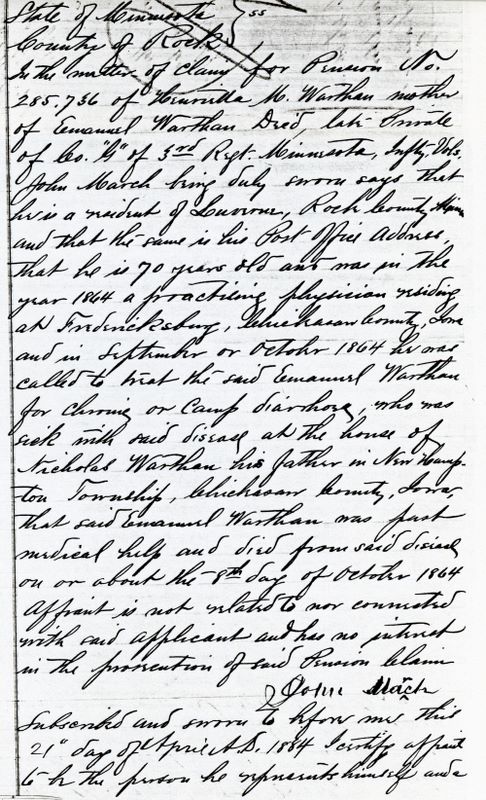 State of Minnesota } ss
County of Rock
In the matter of claim for Pension No.
285,736 of Henrietta M. Warthan mother
of Emanuel Warthan Decd, late Private
of Co. "G" of 3rd Regt. Minnesota, Infty. Vols.
John March being duly sworn says that
he is a resident of Luverne, Rock County, Minn
and that the same is his Post Office Address,
that he is 70 years old and was in the
year 1864 a practising physician residing
at Fredericksburg, Chickasaw County, Iowa
and in September or October 1864 he was
called to treat the said Emanuel Warthan
for chronic or Camp diarrhoea, who was
sick with said disease at the house of
Nicholas Warthan his father in New Hamp-
ton Township, Chickasaw County, Iowa,
that said Emanuel Warthan was past
medical help and died from said disease
on or about the 8th day of October 1864
Affiant is not related to nor connected
with said applicant and has no interest
in the prosecution of said Pension Claim
John March
Subscribed and sworn to before me this
21" day of April A.D. 1884 I certify affiant
to be the person he represents himself and a